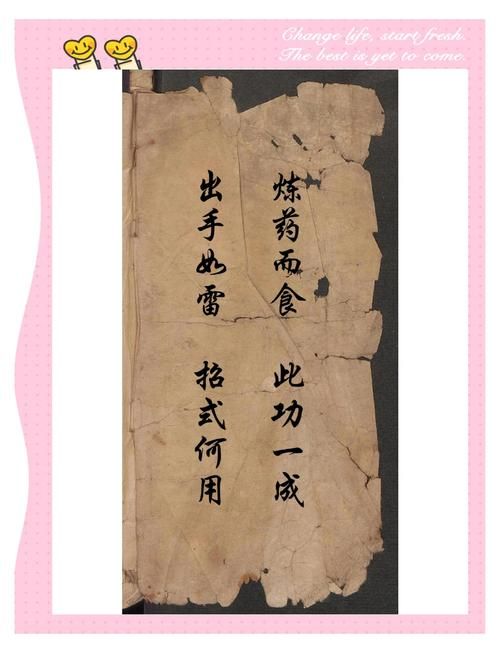 Change life, start fresh.
The best is yet to come.
炼药而食 此功一成
出手如雷 招式何用